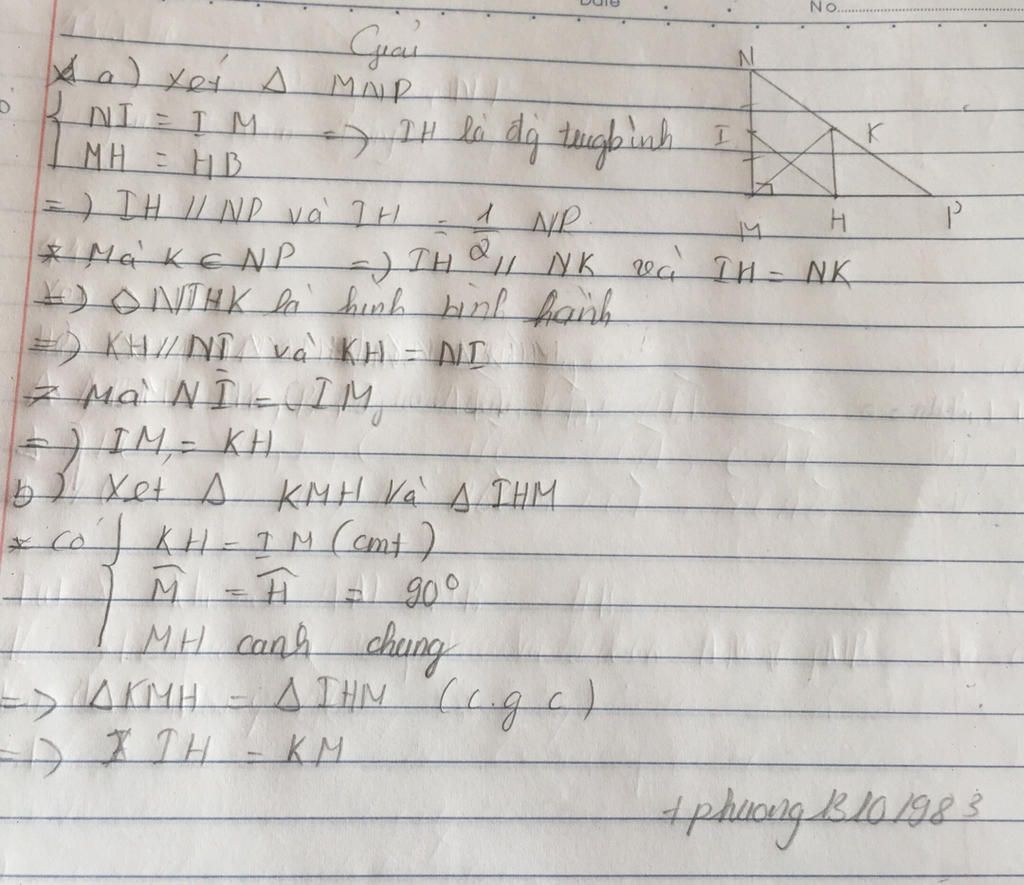 Date
No
Giải
a) Xét Δ MNP
{ NI = IM => IH là đg trugbình
MH = HB
=> IH // NP và IH = 1/2 NP
* Mà K ∈ NP => IH // NK và IH = NK
=> ◇ NIHK là hình bình hành
=> KH // NI và KH = NI
* Mà NI = IM
=> IM = KH
b) Xét Δ KMH và Δ IHM
* Có { KH = IM (cmt)
M̂ = Ĥ = 90°
MH cạnh chung
=> ΔKMH = ΔIHM (c.g c)
=> IH = KM
+phuong13101983
N
I
K
M
H
P